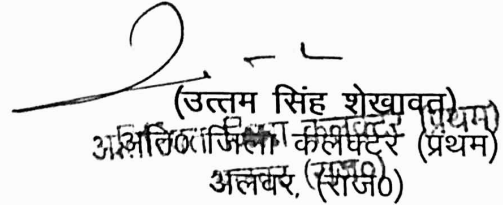 (उत्तम सिंह शेखावत)
अति० जिला कलेक्टर (प्रथम)
अलवर, (राज०)